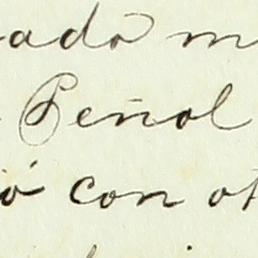 ado m
Peñol
ó con ot